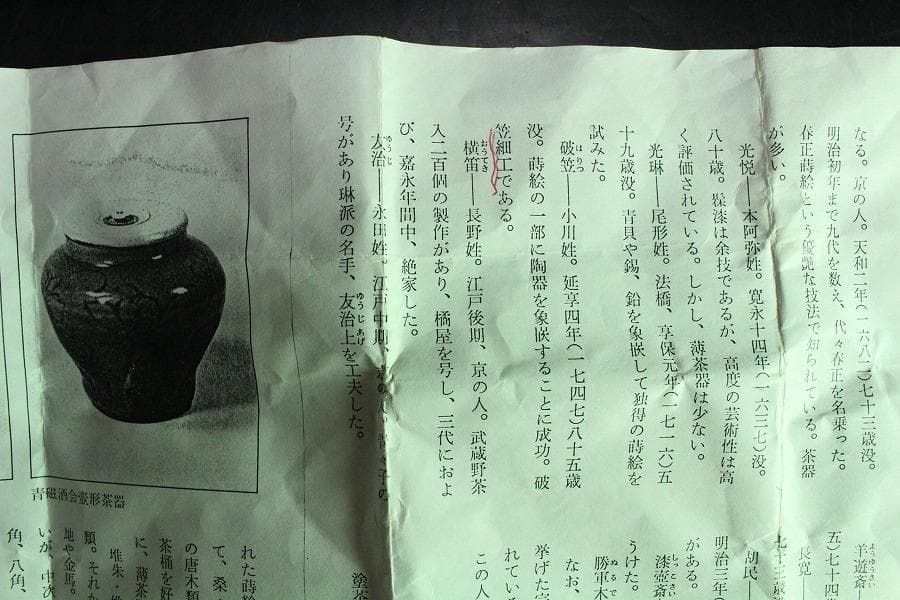 なる。京の人。天和二年(一六八二)七十三歳没。
明治初年まで九代を数え、代々春正を名乗った。
春正蒔絵という優艶な技法で知られている。茶器
が多い。
光悦――本阿弥姓。寛永十四年(一六三七)没。
八十歳。髹漆は余技であるが、高度の芸術性は高
く評価されている。しかし、薄茶器は少ない。
光琳――尾形姓。法橋、享保元年(一七一六)五
十九歳没。青貝や錫、鉛を象嵌して独得の蒔絵を
試みた。
破笠――小川姓。延享四年(一七四七)八十五歳
はりつ
没。蒔絵の一部に陶器を象嵌することに成功。破
笠細工である。
横笛――長野姓。江戸後期、京の人。武蔵野茶
おうてき
入二百個の製作があり、橘屋を号し、三代におよ
び、嘉永年間中、絶家した。
友治――永田姓。江戸中期、
ゆうじ
号があり琳派の名手、友治上を工夫した。
ゆうじあげ
青磁酒会壷形茶器
羊遊斎
ようゆうさい
五)七十四
長寛
七十三歳没
胡民
明治三年(
がある。
漆壺斎
しっこさい
うけた。
勝軍木
ぬるで
なお、
挙げた
れている
この人
塗茶
れた蒔絵
て、桑
の唐木類
茶桶を好
に、薄茶
堆朱・
類。それか
地や金馬。
いが、中次
角、八角、